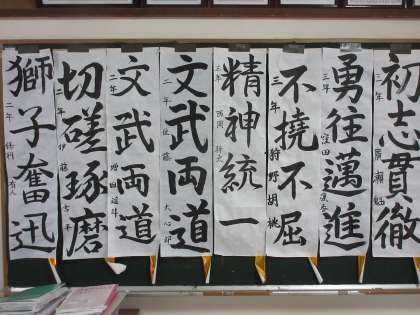 初志貫徹
三年
勇往邁進
三年
不撓不屈
三年 狩野胡桃
精神統一
三年
文武両道
二年 佐藤
文武両道
二年 増田
切磋琢磨
二年 伊藤
獅子奮迅
二年